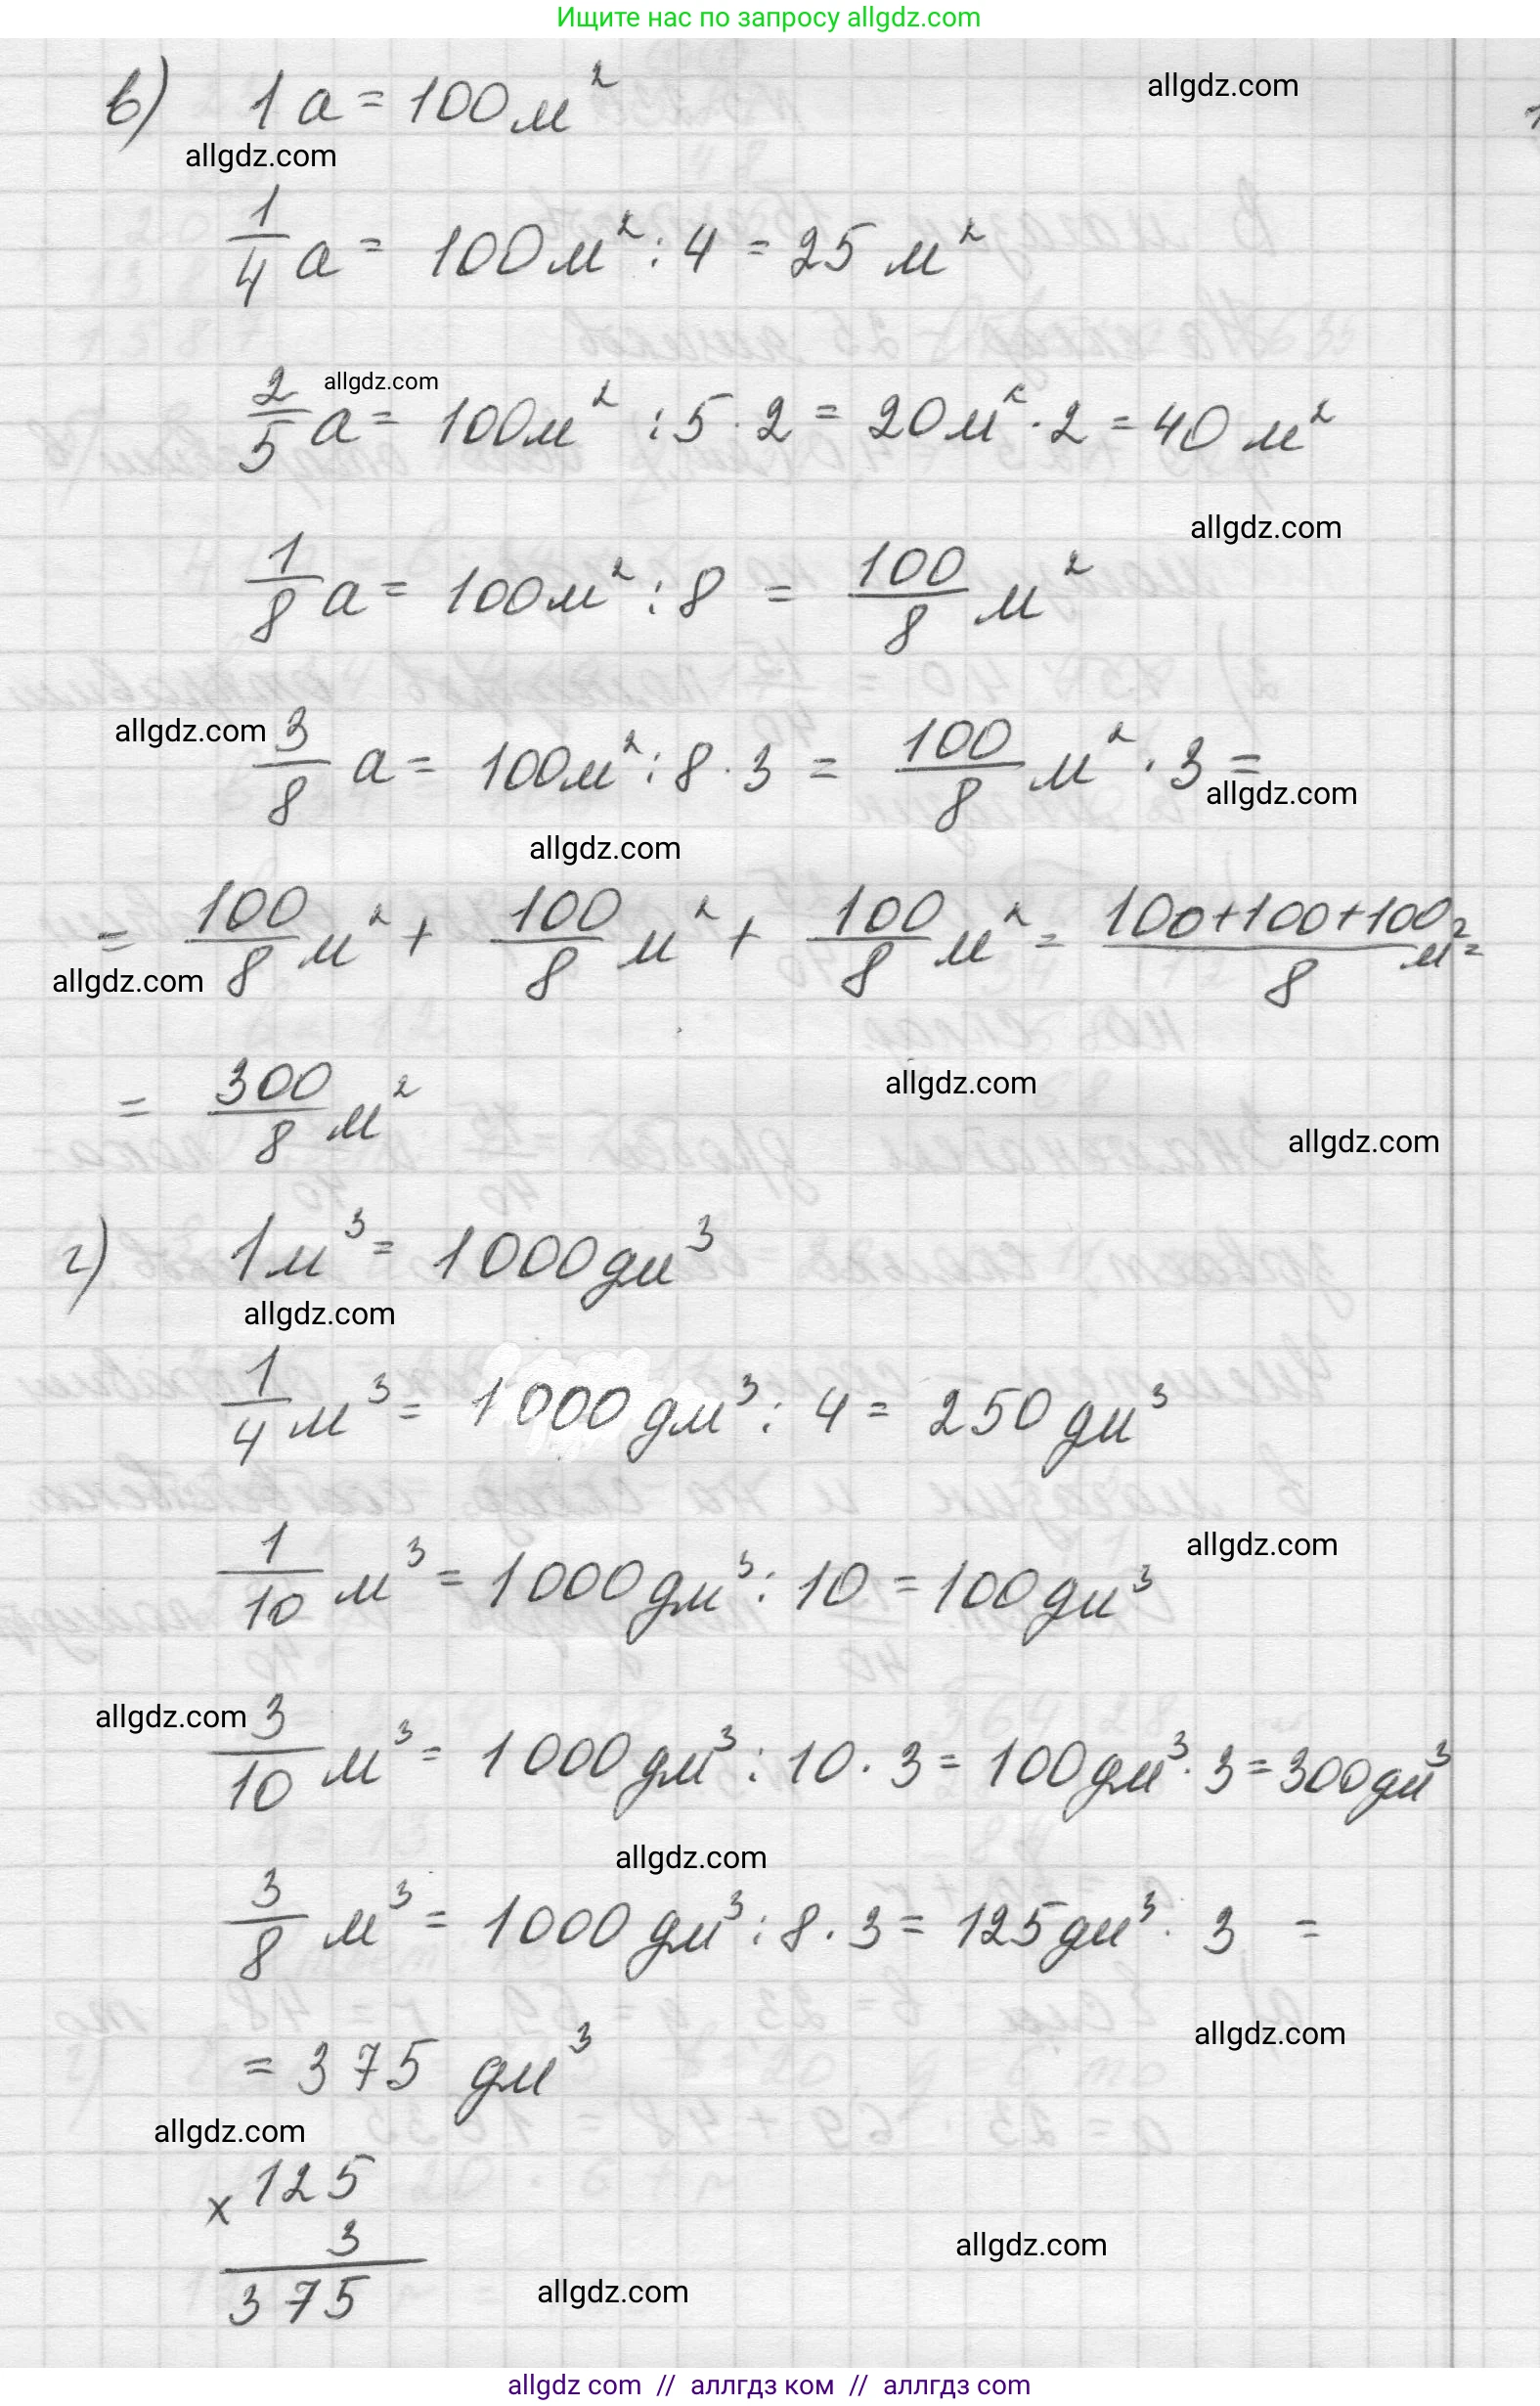 Ищите нас по запросу allgdz.com
в) 1 а = 100 м² allgdz.com
allgdz.com
1/4 а = 100 м² : 4 = 25 м²
allgdz.com
2/5 а = 100 м² : 5 · 2 = 20 м² · 2 = 40 м²
allgdz.com
1/8 а = 100 м² : 8 = 100/8 м²
allgdz.com 3/8 а = 100 м² : 8 · 3 = 100/8 м² · 3 =
allgdz.com
allgdz.com
= 100/8 м² + 100/8 м² + 100/8 м² = (100+100+100)/8 м² =
allgdz.com
= 300/8 м² allgdz.com
allgdz.com
г) 1 м³ = 1000 дм³
allgdz.com
1/4 м³ = 1000 дм³ : 4 = 250 дм³
allgdz.com
1/10 м³ = 1000 дм³ : 10 = 100 дм³
allgdz.com 3/10 м³ = 1000 дм³ : 10 · 3 = 100 дм³ · 3 = 300 дм³
allgdz.com
3/8 м³ = 1000 дм³ : 8 · 3 = 125 дм³ · 3 =
allgdz.com
= 375 дм³
allgdz.com
× 125
3
allgdz.com
375 allgdz.com
allgdz.com // аллгдз ком // аллгдз com